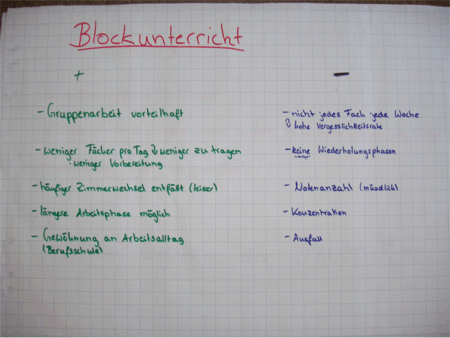 Blockunterricht
+
- Gruppenarbeit vorteilhaft
- weniger Fächer pro Tag ↳ weniger zu tragen
· weniger Vorbereitung
- häufiger Zimmerwechsel entfällt (leiser)
- längere Arbeitsphase möglich
- Gewöhnung an Arbeitsalltag
(Berufsschule)
-
- nicht jedes Fach jede Woche
↳ hohe Vergesslichkeitsrate
- keine Wiederholungsphasen
- Notenanzahl (mündlich)
- Konzentration
- Ausfall